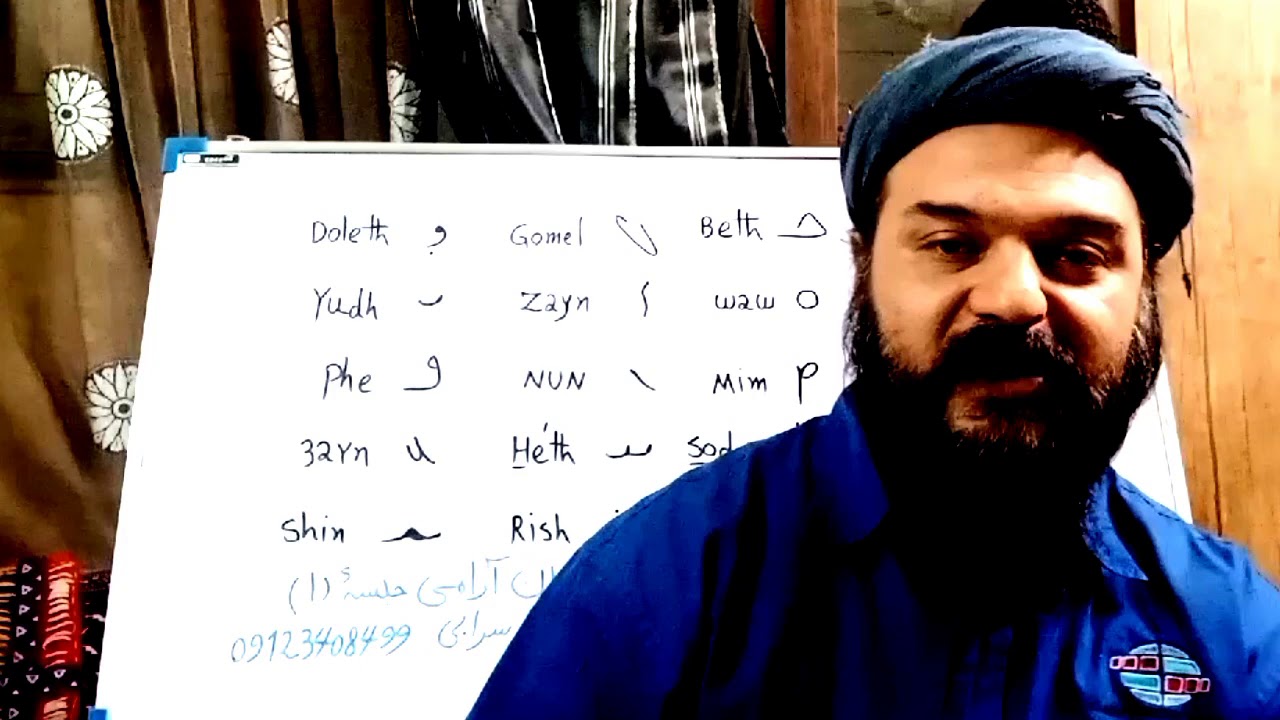 Doleth ܘ Gomel ܓ Beth ܒ
Yudh ܝ Zayn ܙ Waw ܘ
Phe ܦ NUN ܢ Mim
3ayn ܥ Ḥéth ܚ
Shin ܫ Rish
آرامی جلسهٔ (۱)
سرابی 09123408499